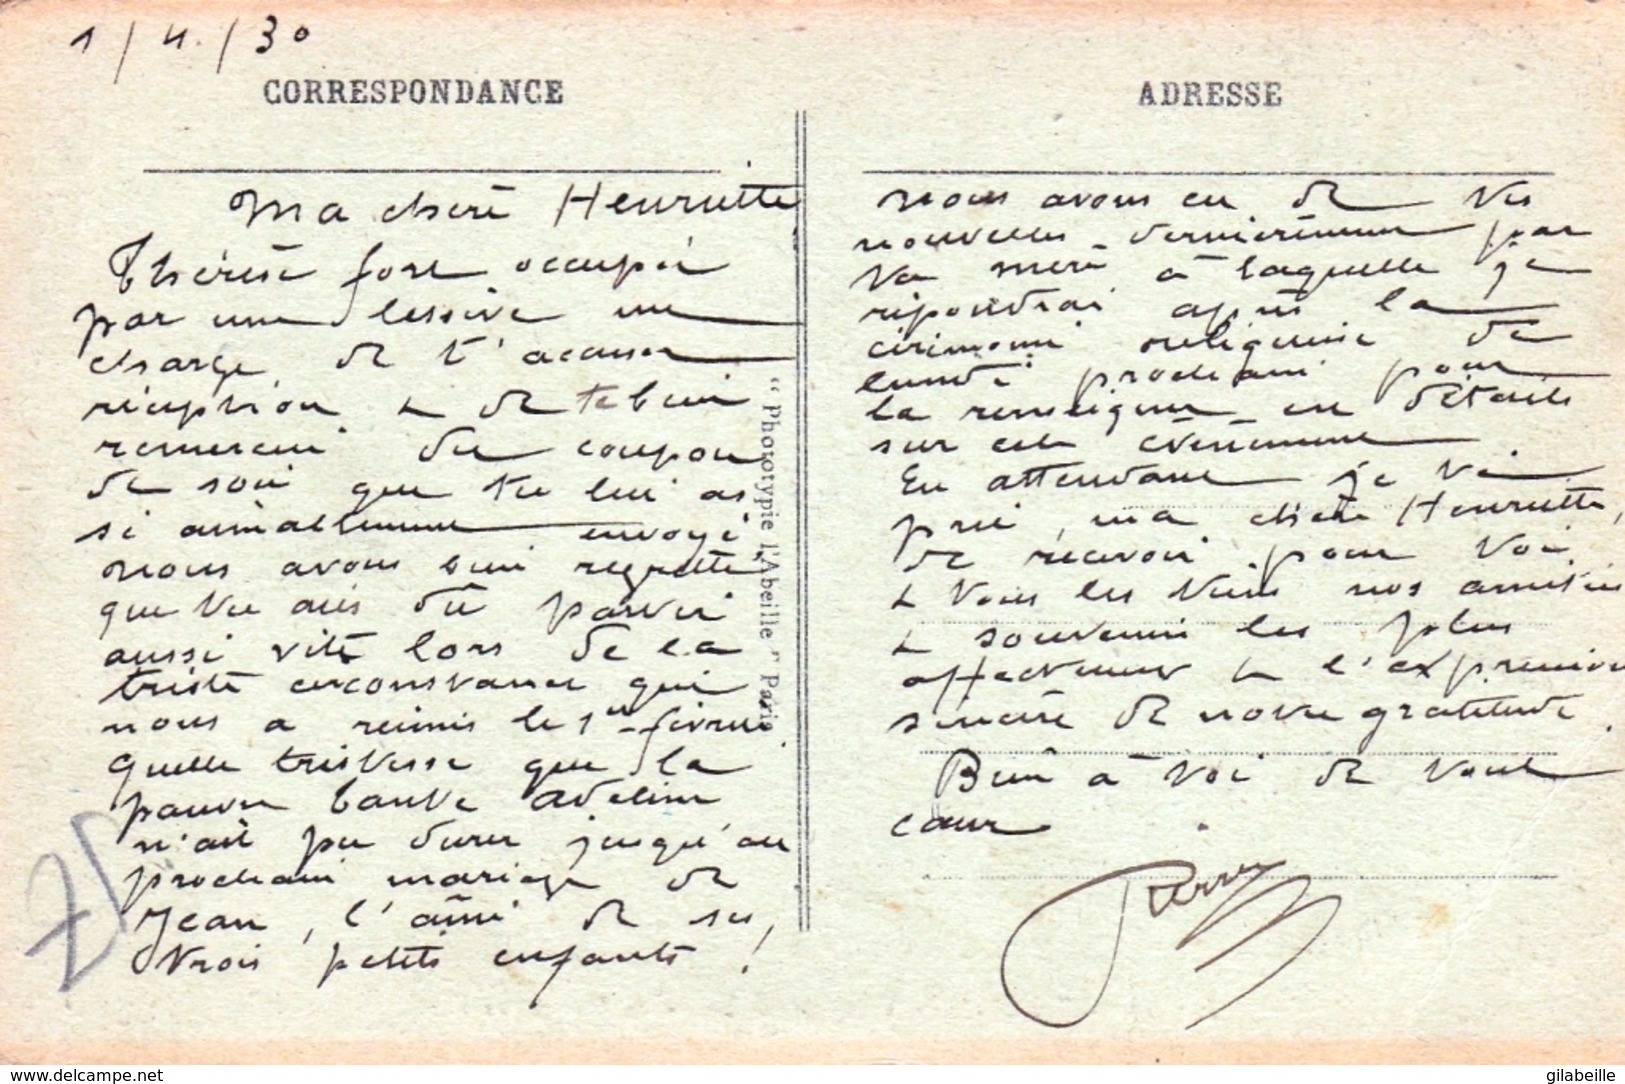 1/4./30
CORRESPONDANCE
Ma chère Henriette
Thérèse fort occupée
par une lessive me
charge de t'accuser
réception & de te bien
remercier du coupon
de soie que tu lui as
si aimablement envoyé,
nous avons bien regretté
que tu aies dû partir
aussi vite lors de la
triste circonstance qui
nous a réunis le 1er février
quelle tristesse que la
pauvre tante Adeline
n'ait pu durer jusqu'au
prochain mariage de
Jean, l'aîné de ses
trois petits enfants !
"Phototypie l'Abeille" Paris
ADRESSE
nous avons eu de tes
nouvelles dernièrement par
ta mère à laquelle je
répondrai après la
cérémonie religieuse de
lundi prochain pour
la renseigner en détails
sur cet évènement
En attendant je te
prie, ma chère Henriette,
de recevoir pour toi
& tous les tiens nos amitiés
& souvenirs les plus
affectueux & l'expression
sincère de notre gratitude.
Bien à toi de tout
cœur
Pierre
delcampe.net
gilabeille